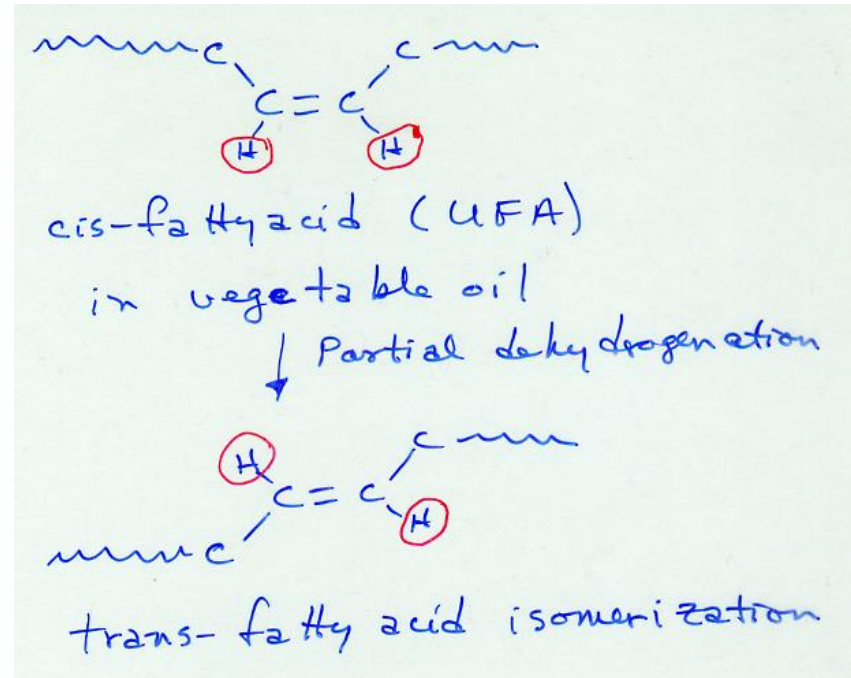 C C
C = C
H H
cis-fatty acid (UFA)
in vegetable oil
Partial dehydrogenation
H C
C = C
H
C
trans-fatty acid isomerization